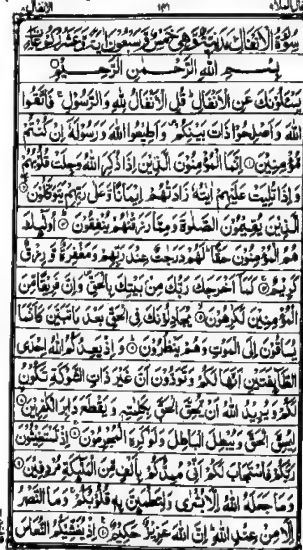 قال الملأ ٩
١٤١
الانفال ٨
سورة الانفال مدنية وهي خمس وسبعون اية وعشر ركوعات
بسم الله الرحمن الرحيم
يسئلونك عن الانفال قل الانفال لله والرسول فاتقوا
الله واصلحوا ذات بينكم واطيعوا الله ورسوله ان كنتم
مؤمنين انما المؤمنون الذين اذا ذكر الله وجلت قلوبهم
واذا تليت عليهم ايته زادتهم ايمانا وعلى ربهم يتوكلون
الذين يقيمون الصلوة ومما رزقنهم ينفقون اولئك
هم المؤمنون حقا لهم درجت عند ربهم ومغفرة ورزق
كريم كما اخرجك ربك من بيتك بالحق وان فريقا من
المؤمنين لكرهون يجادلونك في الحق بعد ما تبين كانما
يساقون الى الموت وهم ينظرون واذ يعدكم الله احدى
الطائفتين انها لكم وتودون ان غير ذات الشوكة تكون
لكم ويريد الله ان يحق الحق بكلمته ويقطع دابر الكفرين
ليحق الحق ويبطل الباطل ولو كره المجرمون اذ تستغيثون
ربكم فاستجاب لكم اني ممدكم بالف من الملئكة مردفين
وما جعله الله الا بشرى ولتطمئن به قلوبكم وما النصر
الا من عند الله ان الله عزيز حكيم اذ يغشيكم النعاس